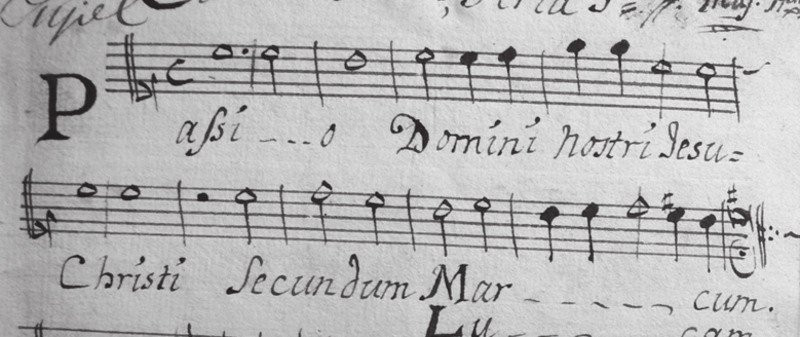 Passi - - - o Domini nostri Jesu=
Christi Secundum Mar - - - - - cum.
Lu - - - - cam